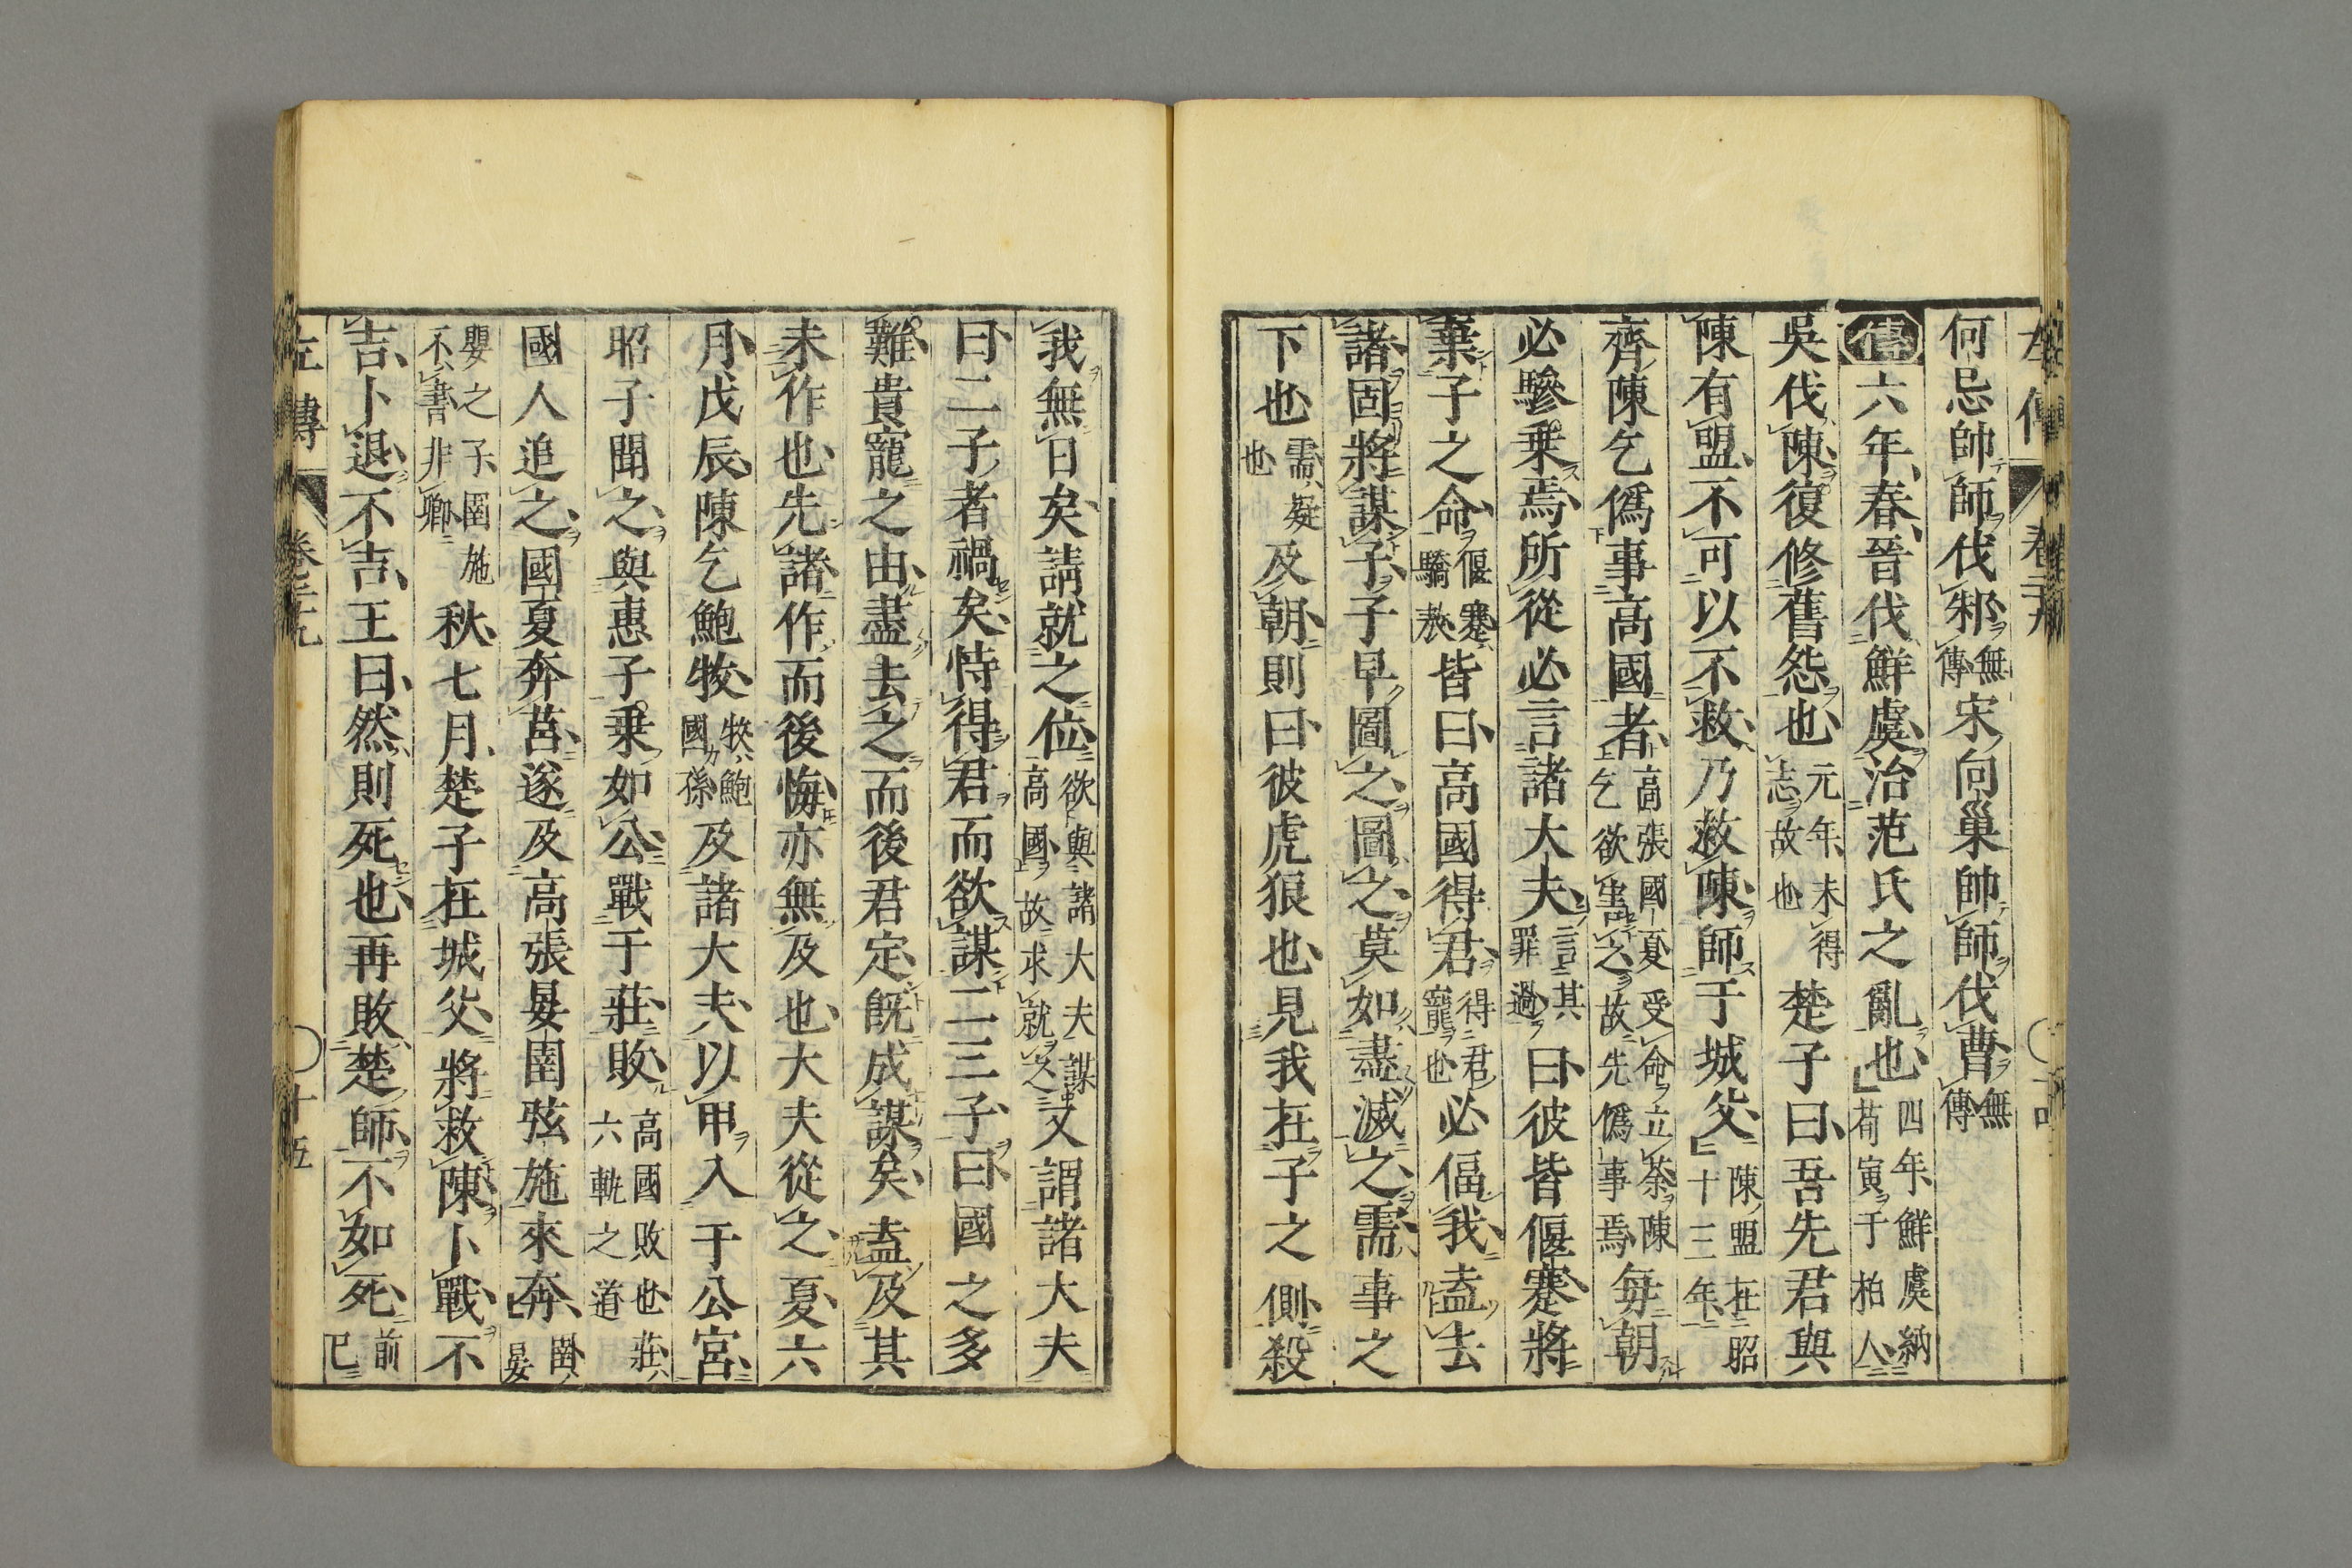 左傳 卷二十九
何忌帥師伐邾無傳宋向巢帥師伐曹無傳
傳六年春晉伐鮮虞治范氏之亂也四年鮮虞納荀寅于柏人
吳伐陳復修舊怨也元年未得志故也楚子曰吾先君與
陳有盟不可以不救乃救陳師于城父陳盟在昭十三年
齊陳乞僞事高國者高張國夏受命立荼陳乞欲害之故先僞事焉每朝
必驂乗焉所從必言諸大夫言其罪過曰彼皆偃蹇將
棄子之命偃蹇驕敖皆曰高國得君得君寵也必偪我盍去
諸固將謀子子早圖之圖之莫如盡滅之需事之
下也需疑也及朝則曰彼虎狼也見我在子之側殺
我無日矣請就之位欲與諸大夫謀高國故求就之又謂諸大夫
曰二子者禍矣恃得君而欲謀二三子曰國之多
難貴寵之由盡去之而後君定既成謀矣盍及其
未作也先諸作而後悔亦無及也大夫從之夏六
月戊辰陳乞鮑牧牧鮑國孫及諸大夫以甲入于公宮
昭子聞之與惠子乗如公戰于莊敗高國敗也莊六軌之道
國人追之國夏奔莒遂及高張晏圉弦施來奔圉晏
嬰之子圉施不書非卿秋七月楚子在城父將救陳卜戰不
吉卜退不吉王曰然則死也再敗楚師不如死前已
左傳 卷二十九 十五